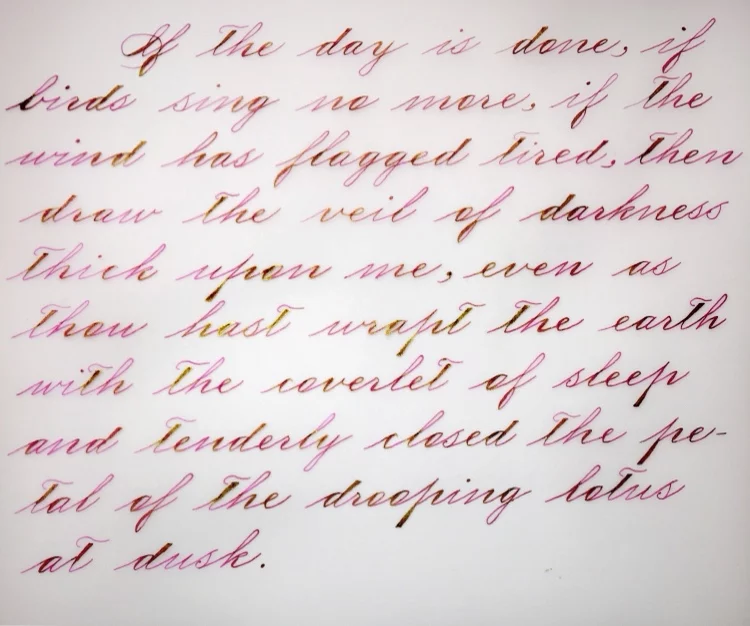 If the day is done, if
birds sing no more, if the
wind has flagged tired, then
draw the veil of darkness
thick upon me, even as
thou hast wrapt the earth
with the coverlet of sleep
and tenderly closed the pe-
tal of the drooping lotus
at dusk.